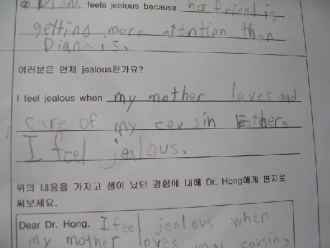 ② Diana feels jealous because her friend is
getting more attention than
Diana is.
여러분은 언제 jealous한가요?
I feel jealous when my mother loves and
care of my cousin Esther.
I feel jealous.
위의 내용을 가지고 샘이 났던 경험에 대해 Dr. Hong에게 편지로
써보세요.
Dear Dr. Hong, I feel jealous when
my mother loves my cousins